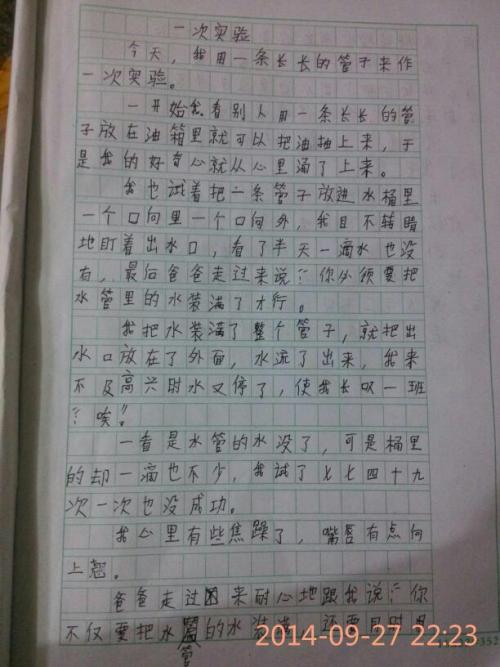 一次实验
今天，我用一条长长的管子来作
一次实验。
一开始我看别人用一条长长的管
子放在油箱里就可以把油抽上来，于
是我的好奇心就从心里涌了上来。
我也试着把一条管子放进水桶里
一个口向里一个口向外，我目不转睛
地盯着出水口，看了半天一滴水也没
有，最后爸爸走过来说："你必须要把
水管里的水装满了才行。
我把水装满了整个管子，就把出
水口放在了外面，水流了出来，我来
不及高兴时水又停了，使我长叹一班
"唉"。
一看是水管的水没了，可是桶里
的却一滴也不少，我试了七七四十九
次一次也没成功。
我心里有些焦躁了，嘴唇有点向
上翘。
爸爸走过来耐心地跟我说："你
不仅要把水管的水装满，还要
2014-09-27 22:23